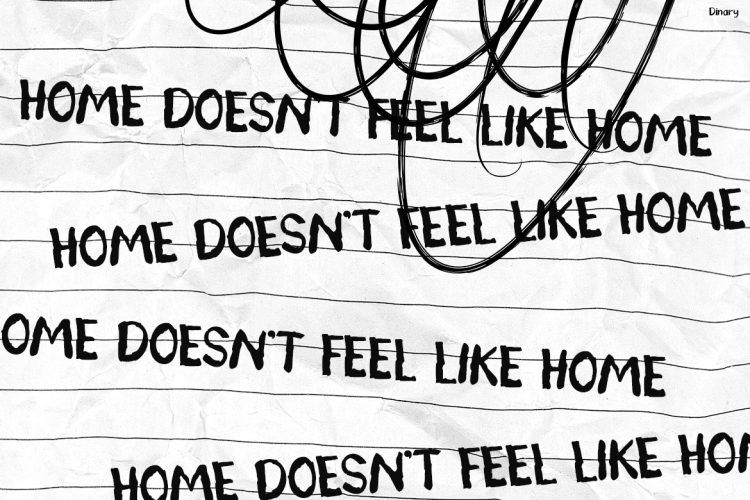 Dinary
HOME DOESN'T FEEL LIKE HOME
HOME DOESN'T FEEL LIKE HOME
OME DOESN'T FEEL LIKE HOME
HOME DOESN'T FEEL LIKE HOM